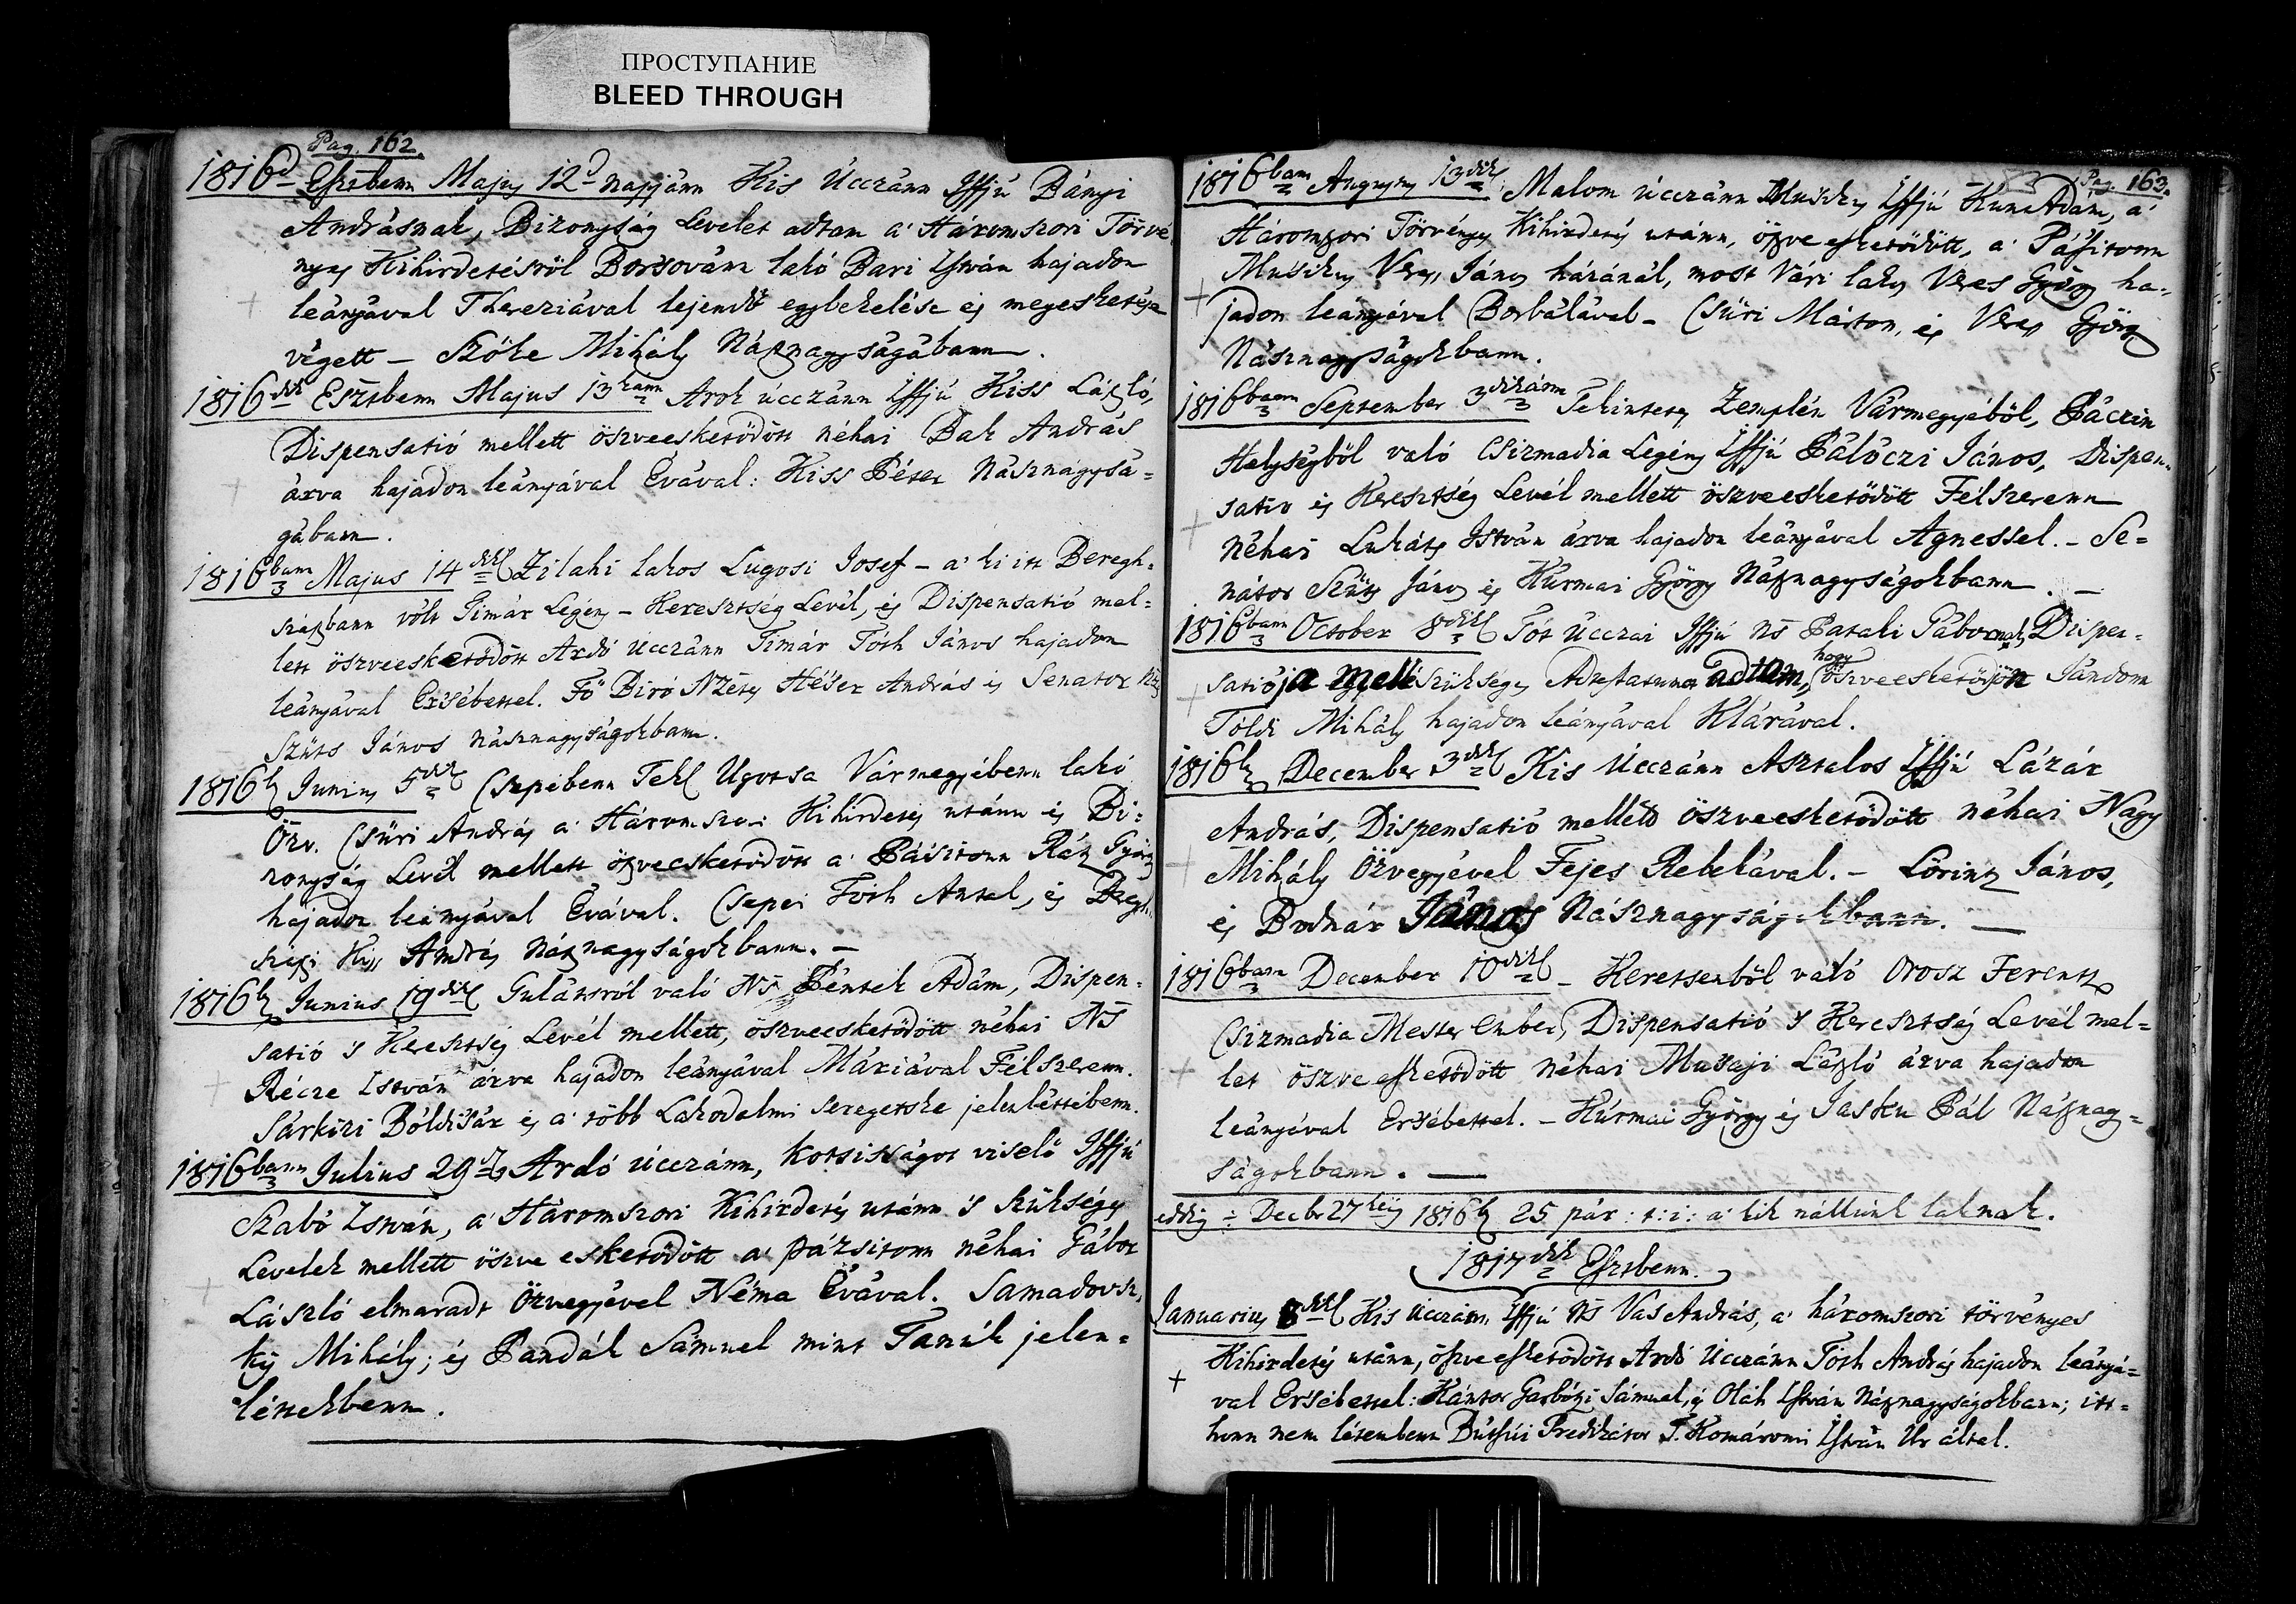 ПРОСТУПАНИЕ
BLEED THROUGH
Pag. 162.
1816d Esztbenn Majus 12d napjánn Kis Ucczánn Iffjú Bányi
Andrásnak, Bizonyság Levelet adtam a' Háromszori Törvé
nyes Kihirdetésröl Borsovánn lakó Bari István hajadon
leányával Théréziával lejendö egybekelése és megesketése
végett – Szöke Mihály Násznagyságábann.
1816dik Esztbenn Majus 13kann Arok úcczánn Iffjú Kiss László,
Dispensatió mellett öszveesketödött néhai Bak András
árva hajadon leányával Évával: Kiss Péter Násznagysá=
gábann.
1816bann Majus 14dik Zilahi lakos Lugosi Josef – a' ki itt Beregh=
szászbann vólt Timár Legény – Keresztség Levél, és Dispensatió mel=
lett öszveesketödött Ardó Ucczánn Timár Tóth János hajadon
leányával Ersébettel. Fö Biró Héder András és Senator
Szüts János násznagyságokbann.
1816b Junius 5dik Csepébenn Tek Ugotsa Vármegyébenn lakó
Özv. Csüri András a' Háromszori Kihirdetés utánn és Bi=
zonyság Levél mellett öszveesketödött a' Pásitonn Rátz György
hajadon leányával Évával. Csepei Tóth Antal, és Bregh=
szászi Kiss András Násznagyságokbann. –
1816b Junius 19dik Gulátsról való Ns Péntek Adám, Dispen=
satió 's Keresztség Levél mellett, öszveesketödött néhai Ns
Récze István árva hajadon leányával Máriával Félszerenn.
Sárközi Bóldisár és a' több Lakodalmi seregetske jelenlétébenn.
1816bann Julius 29d Ardó úcczánn, Kotsisságot viselö Iffjú
Szabó István, a' Háromszori Kihirdetés utánn 's Szükséges
Levelek mellett öszve esketödött a' pázsitonn néhai Gábor
László elmaradt Özvegyével Néma Évával. Samadovsz
ky Mihály; és Pandák Sámuel mint Tanúk jelen=
létekbenn.
Pag. 163.
1816bann Augustus 13dik Malom úcczánn Musikus Iffjú Kun Adám, a'
Háromszori Törvényes Kihirdetés utánn, öszve esketödött, a' Pásitonn
Musikus Veres János házánál, most Vári lakos Veres György ha=
jadon leányával Borbálával – Csüri Márton, és Veres György
Násznagyságokbann.
1816bann September 3dikánn Tekintetes Zemplén Vármegyéböl, Páczin
Helységböl való Csizmadia Legény Iffjú Pálóczi János, Dispen=
satio és Keresztség Levél mellett öszveesketödött Félszerenn
néhai Lukáts István árva hajadon leányával Agnessel. – Se=
nátor Szüts János és Kurmai György Násznagyságokbann. –
1816bann October 8dik Tót Ucczai Iffjú Ns Pataki Gábornak, Dispen=
satiója mellé szükséges Adtam, hogy öszveesketödjön Jándonn
Tóldi Mihály hajadon leányával Klárával.
1816b December 3dik Kis Ucczánn Asztalos Iffjú Lázár
András, Dispensatió mellett öszveesketödött néhai Nagy
Mihály Özvegyével Fejes Rebekával. – Lörintz János,
és Bodnár János Násznagyságokbann. –
1816bann December 10dik – Keretsenböl való Orosz Ferentz
Csizmadia Mester Ember, Dispensatió 's Keresztség Levél mel=
let öszve esketödött néhai Musaji László árva hajadon
leányával Ersébettel. – Kúrmai György és Jasku Pál Násznagy=
ságokbann. –
eddig : Decbr 27kéig 1816b 25 pár : t:i: a' kik nállunk laknak.
1817dik Esztbenn.
Januarius 8dik Kis Ucczánn, Iffjú Ns Vas András, a' háromszori törvényes
Kihirdetés utánn, öszve esketödött Ardó Ucczánn Tóth András hajadon leányá=
val Ersébettel: Kántor Garbótzi Sámuel, és Oláh István Násznagyságokbann; itt=
honn nem létembenn Bútsúi Prédikátor T. Komáromi István Ur által.